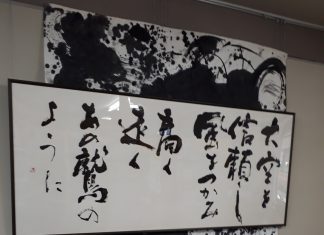 大空を
信頼し
風をつかみ
高く
速く
あの鷲の
ように